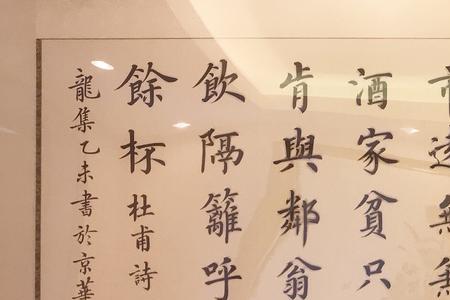 市遠無兼
酒家貧只
肯與鄰翁
飲隔籬呼
餘杯杜甫詩
龍集乙未書於京華